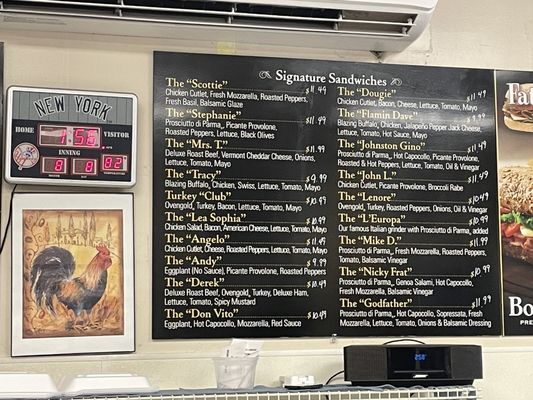 NEW YORK
HOME
1:56
VISITOR
INNING
8
8
02
Signature Sandwiches
The "Scottie" $11.49
Chicken Cutlet, Fresh Mozzarella, Roasted Peppers,
Fresh Basil, Balsamic Glaze
The "Stephanie"
Prosciutto di Parma, Picante Provolone, $11.99
Roasted Peppers, Lettuce, Black Olives
The "Mrs. T." $11.99
Deluxe Roast Beef, Vermont Cheddar Cheese, Onions,
Lettuce, Tomato, Mayo
The "Tracy" $9.99
Blazing Buffalo, Chicken, Swiss, Lettuce, Tomato, Mayo
Turkey "Club" $10.49
Ovengold, Turkey, Bacon, Lettuce, Tomato, Mayo
The "Lea Sophia" $10.99
Chicken Salad, Bacon, American Cheese, Lettuce, Tomato, Mayo
The "Angelo" $11.49
Chicken Cutlet, Cheese, Roasted Peppers, Lettuce, Tomato, Mayo
The "Andy" $9.99
Eggplant (No Sauce), Picante Provolone, Roasted Peppers
The "Derek" $10.49
Deluxe Roast Beef, Ovengold, Turkey, Deluxe Ham,
Lettuce, Tomato, Spicy Mustard
The "Don Vito" $10.49
Eggplant, Hot Capocollo, Mozzarella, Red Sauce
The "Dougie" $11.49
Chicken Cutlet, Bacon, Cheese, Lettuce, Tomato, Mayo
The "Flamin Dave" $9.99
Blazing Buffalo, Chicken, Jalapeño Pepper Jack Cheese,
Lettuce, Tomato, Hot Sauce, Mayo
The "Johnston Gino" $11.49
Prosciutto di Parma, Hot Capocollo, Picante Provolone,
Roasted & Hot Peppers, Lettuce, Tomato, Oil & Vinegar
The "John L." $11.49
Chicken Cutlet, Picante Provolone, Broccoli Rabe
The "Lenore" $10.49
Ovengold, Turkey, Roasted Peppers, Onions, Oil & Vinegar
The "L'Europa" $10.99
Our famous Italian grinder with Prosciutto di Parma, added
The "Mike D." $11.99
Prosciutto di Parma, Fresh Mozzarella, Roasted Peppers,
Tomato, Balsamic Vinegar
The "Nicky Frat" $10.99
Prosciutto di Parma, Genoa Salami, Hot Capocollo,
Balsamic Vinegar
The "Godfather" $11.99
Prosciutto di Parma, Hot Capocollo, Sopressata, Fresh
Mozzarella, Lettuce, Tomato, Onions & Balsamic Dressing
2:58